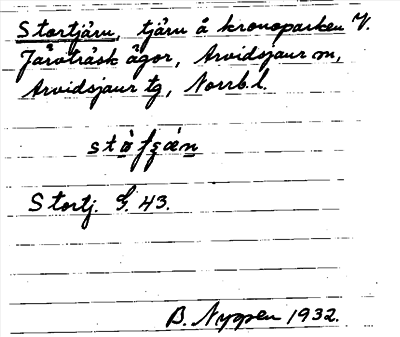 Stortjärn, tjärn å kronoparken V.
Järvträsk ägor, Arvidsjaur sn,
Arvidsjaur tg, Norrb.l.
Stortj. G. 43.
B. Nyman 1932.